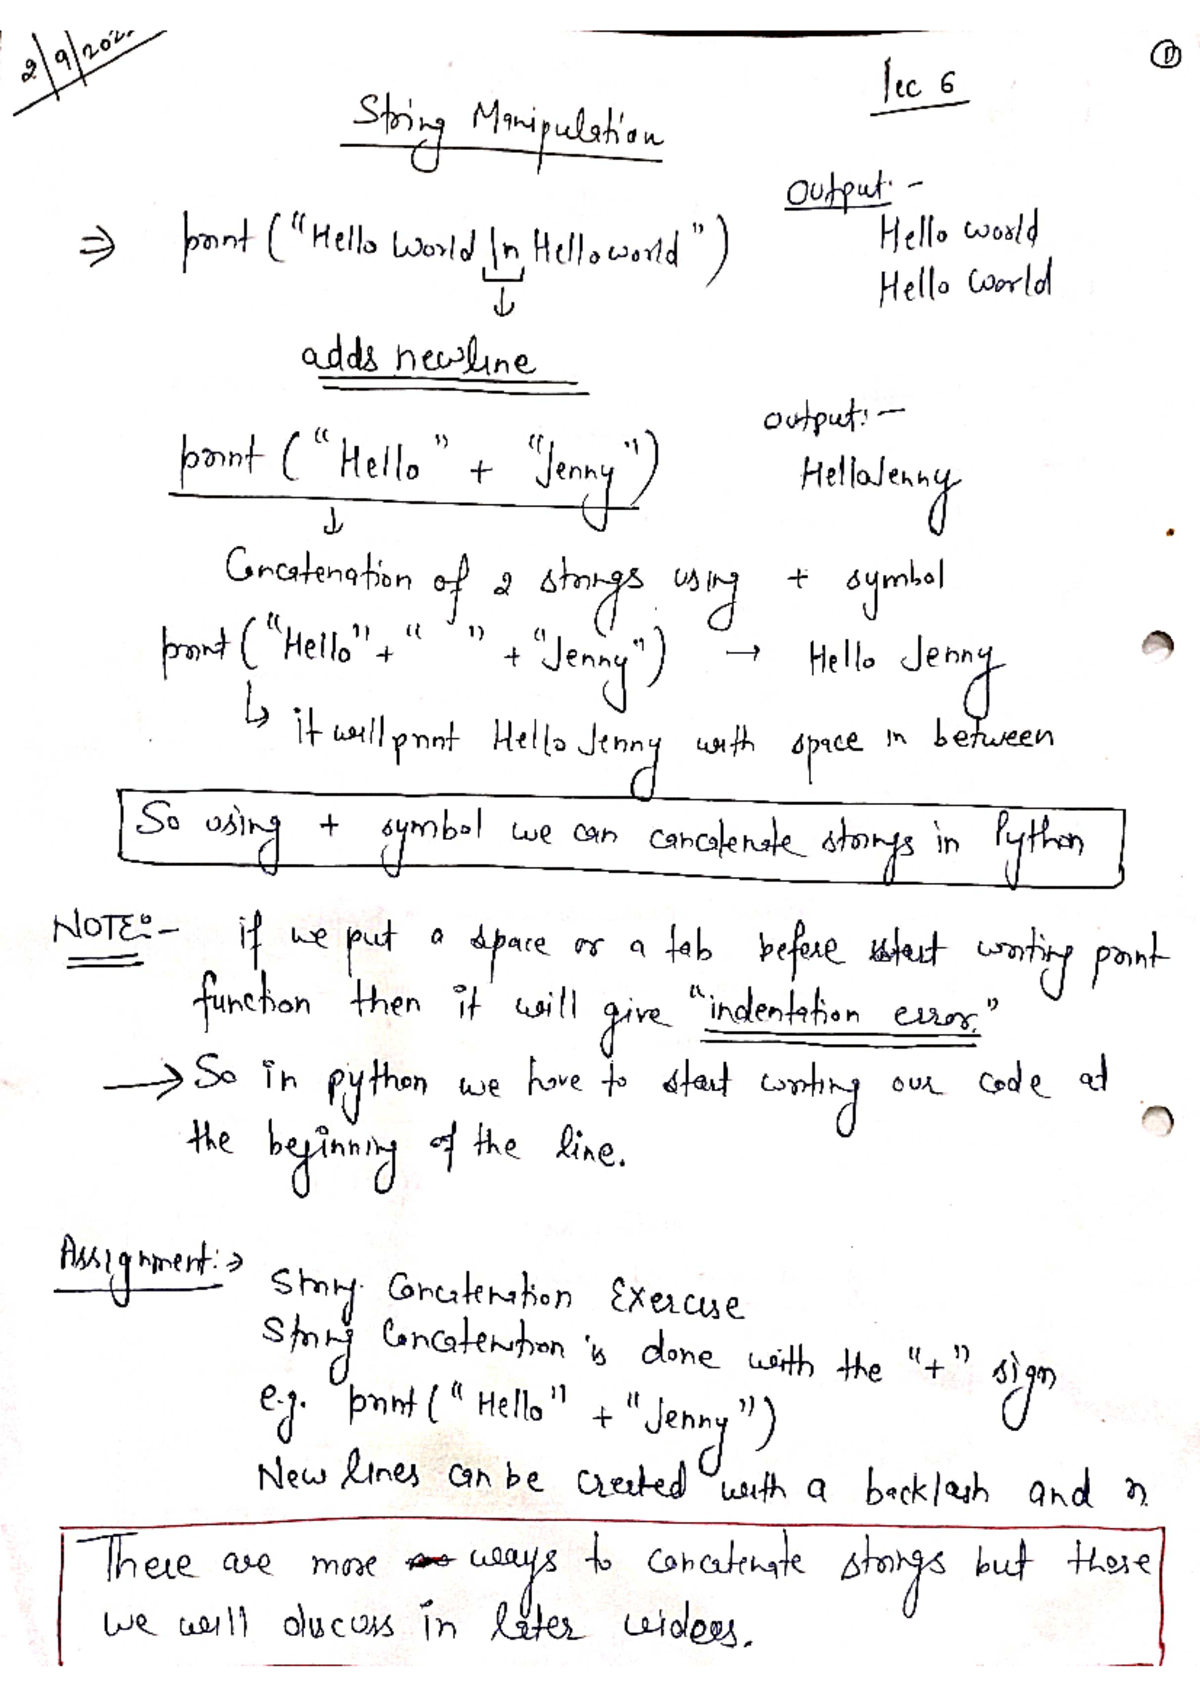 2/9/202
①
lec 6
String Manipulation
Output:-
⇒ print ("Hello World \n Hello world")
Hello world
Hello World
↓
adds newline
output:-
print ("Hello" + "Jenny")
HelloJenny
↓
Concatenation of 2 strings using + symbol
print ("Hello" + " " + "Jenny") → Hello Jenny
↳ it will print Hello Jenny with space in between
So using + symbol we can concatenate strings in Python
NOTE:- if we put a space or a tab before start writing print
function then it will give "indentation error."
→ So in python we have to start writing our code at
the beginning of the line.
Assignment:→
String Concatenation Exercise
String Concatenation is done with the "+" sign
e.g. print ("Hello" + "Jenny")
New lines can be created with a backlash and n
There are more ways to concatenate strings but those
we will discuss in later videos.